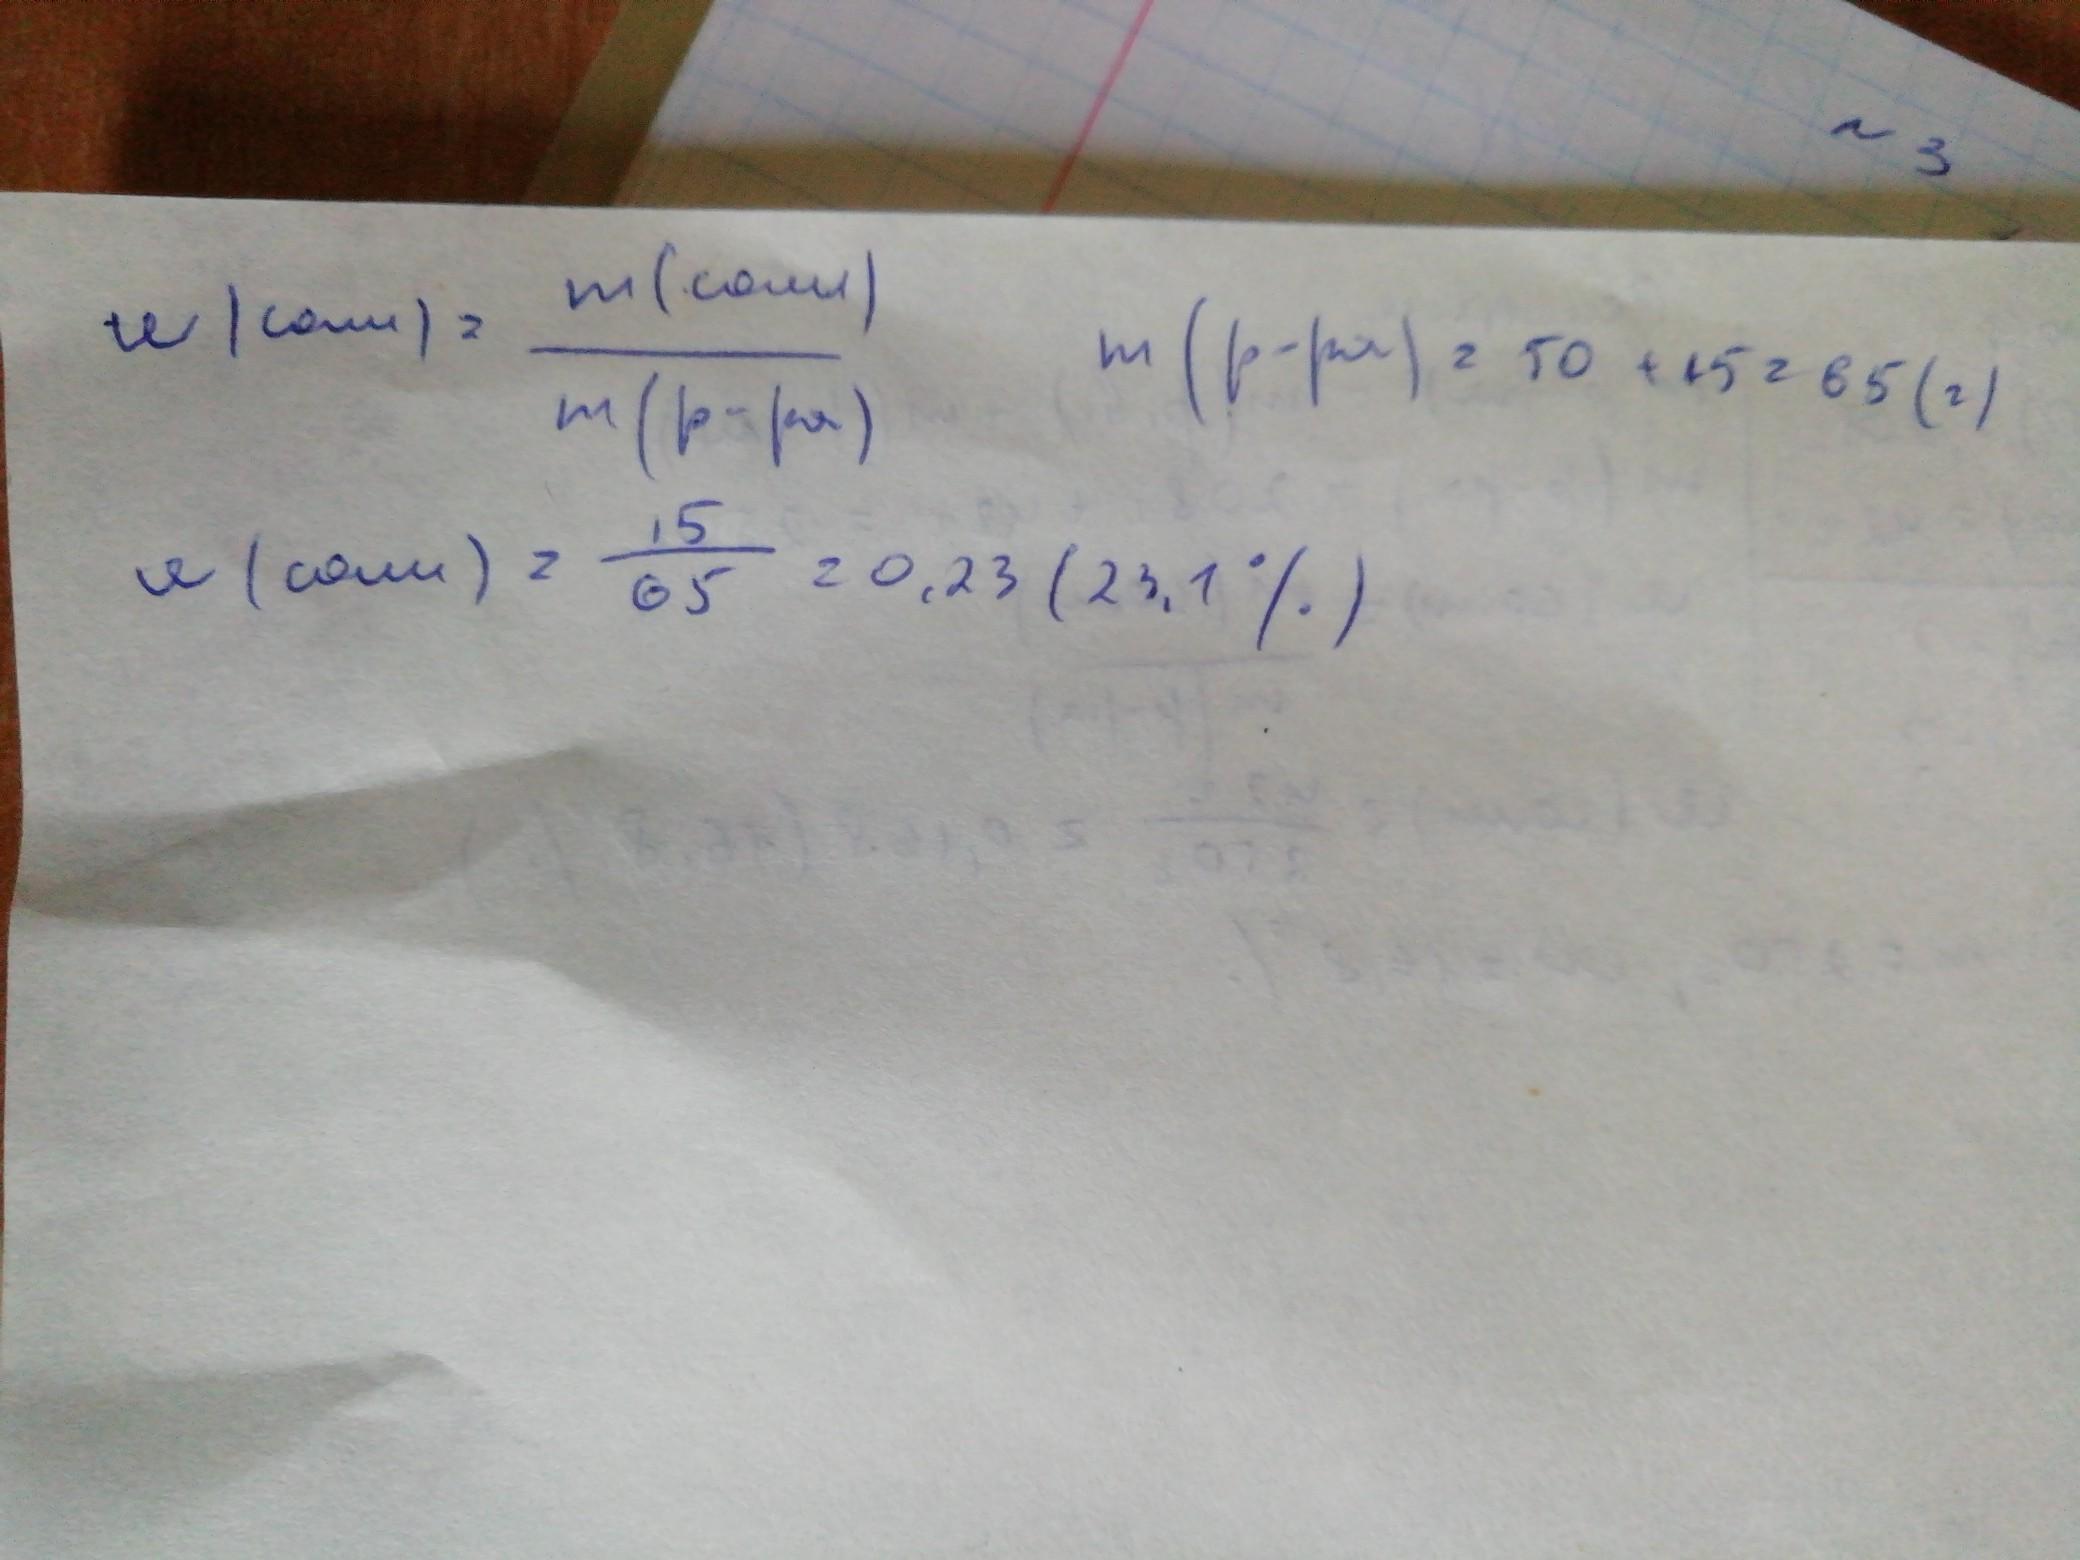 ~ 3
w(соли) = m(соли) / m(р-ра)
m(р-ра) = 50 + 15 = 65 (г)
w(соли) = 15 / 65 = 0,23 (23,1 %)